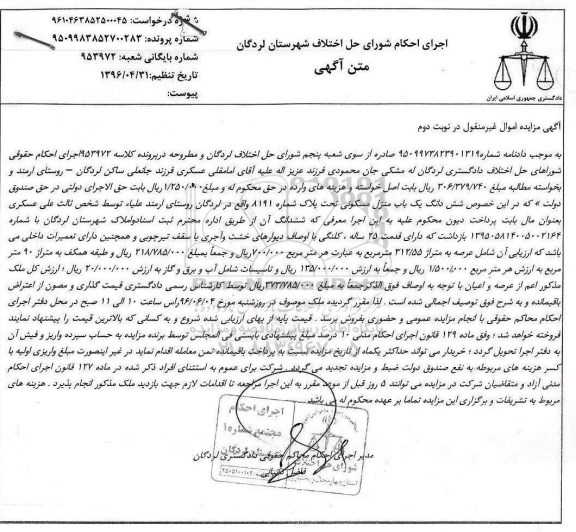 شماره درخواست: ۹۶۱۰۴۶۳۸۵۲۵۰۰۰۴۵
شماره پرونده: ۹۵۰۹۹۸۳۸۵۲۷۰۰۲۸۳
شماره بایگانی شعبه: ۹۵۳۹۷۲
تاریخ تنظیم: ۱۳۹۶/۰۴/۳۱
پیوست:
اجرای احکام شورای حل اختلاف شهرستان لردگان
متن آگهی
دادگستری جمهوری اسلامی ایران
آگهی مزایده اموال غیرمنقول در نوبت دوم
به موجب دادنامه شماره۹۵۰۹۹۷۳۸۲۳۹۰۱۳۱۹ صادره از سوی شعبه پنجم شورای حل اختلاف لردگان و مطروحه درپرونده کلاسه ۹۵۳۹۷۲اجرای احکام حقوقی
شوراهای حل اختلاف دادگستری لردگان له مشکی جان محمودی فرزند عزیز اله علیه آقای امامقلی عسکری فرزند جانعلی ساکن لردگان – روستای ارمند و
بخواسته مطالبه مبلغ ۳۰۶/۳۷۹/۷۴۰ ریال بابت اصل خواسته و هزینه های وارده در حق محکوم له و مبلغ ۱/۲۵۰/۰۰۰ریال بابت حق الاجرای دولتی در حق صندوق
دولت » که در این خصوص شش دانگ یک باب منزل مسکونی تحت پلاک شماره ۸۱۹۱ واقع در لردگان روستای ارمند علیاء توسط شخص ثالث علی عسکری
بعنوان مال بابت پرداخت دیون محکوم علیه به این اجرا معرفی که ششدانگ آن از طریق اداره محترم ثبت اسنادواملاک شهرستان لردگان با شماره
۱۳۹۵۰۵۸۱۴۰۰۵۰۰۲۱۶۴ بازداشت که دارای قدمت ۳۵ ساله ، کلنگی با اوصاف دیوارهای خشت وآجری با سقف تیرچوبی و همچنین دارای تعمیرات داخلی می
باشد که ارزیابی آن شامل عرصه به متراژ ۳۱۲/۵۵ مترمربع به عبارت هر متر مربع ۷۰۰/۰۰۰ریال و جمعاً بمبلغ ۲۱۸/۷۸۵/۰۰۰ ریال و طبقه همکف به متراژ ۹۰ متر
مربع به ارزش هر متر مربع ۱/۵۰۰/۰۰۰ ریال و جمعاً به ارزش ۱۳۵/۰۰۰/۰۰۰ ریال و تاسیسات شامل آب و برق و گاز به ارزش ۲۰/۰۰۰/۰۰۰ ریال ؛ ارزش کل ملک
مذکور اعم از عرصه و اعیان با توجه به اوصاف فوق الذکر جمعاً به مبلغ ۳۷۳/۷۸۵/۰۰۰ریال توسط کارشناس رسمی دادگستری قیمت گذاری و مصون از اعتراف
باقیمانده و به شرح فوق توصیف اجمالی شده است . لذا مقرر گردیده ملک موصوف در روزشنبه مورخ ۹۶/۰۶/۰۴راس ساعت ۱۰ الی ۱۱ صبح در محل دفتر اجرای
احکام محاکم حقوقی با انجام مزایده عمومی و حضوری بفروش برسد . قیمت پایه از بهای ارزیابی شده شروع و به کسانی که بالاترین قیمت را پیشنهاد نمایند
فروخته خواهد شد ؛ وفق ماده ۱۲۹ قانون اجرای احکام مدنی ۱۰ درصد مبلغ پیشنهادی بایستی فی المجلس توسط برنده مزایده به حساب سپرده واریز و فیش آن
به دفتر اجرا تحویل گردد ؛ خریدار می تواند حداکثر یکماه از تاریخ مزایده نسبت به پرداخت باقیمانده ثمن معامله اقدام نماید در غیر اینصورت مبلغ واریزی اولیه با
کسر هزینه های مربوطه به نفع صندوق دولت ضبط و مزایده تجدید می گردد . شرکت برای عموم به استثنای افراد ذکر شده در ماده ۱۲۷ قانون اجرای احکام
مدنی آزاد و متقاضیان شرکت در مزایده می توانند ۵ روز قبل از موعد مقرر به این اجرا مراجعه تا اقدامات لازم جهت بازدید ملک مذکور انجام پذیرد . هزینه های
مربوط به تشریفات و برگزاری این مزایده تماما بر عهده محکوم له می باشد
مدیر اجرای احکام محاکم حقوقی دادگستری لردگان
اجرای احکام
مجتمع شماره ۱
شورای حل اختلاف